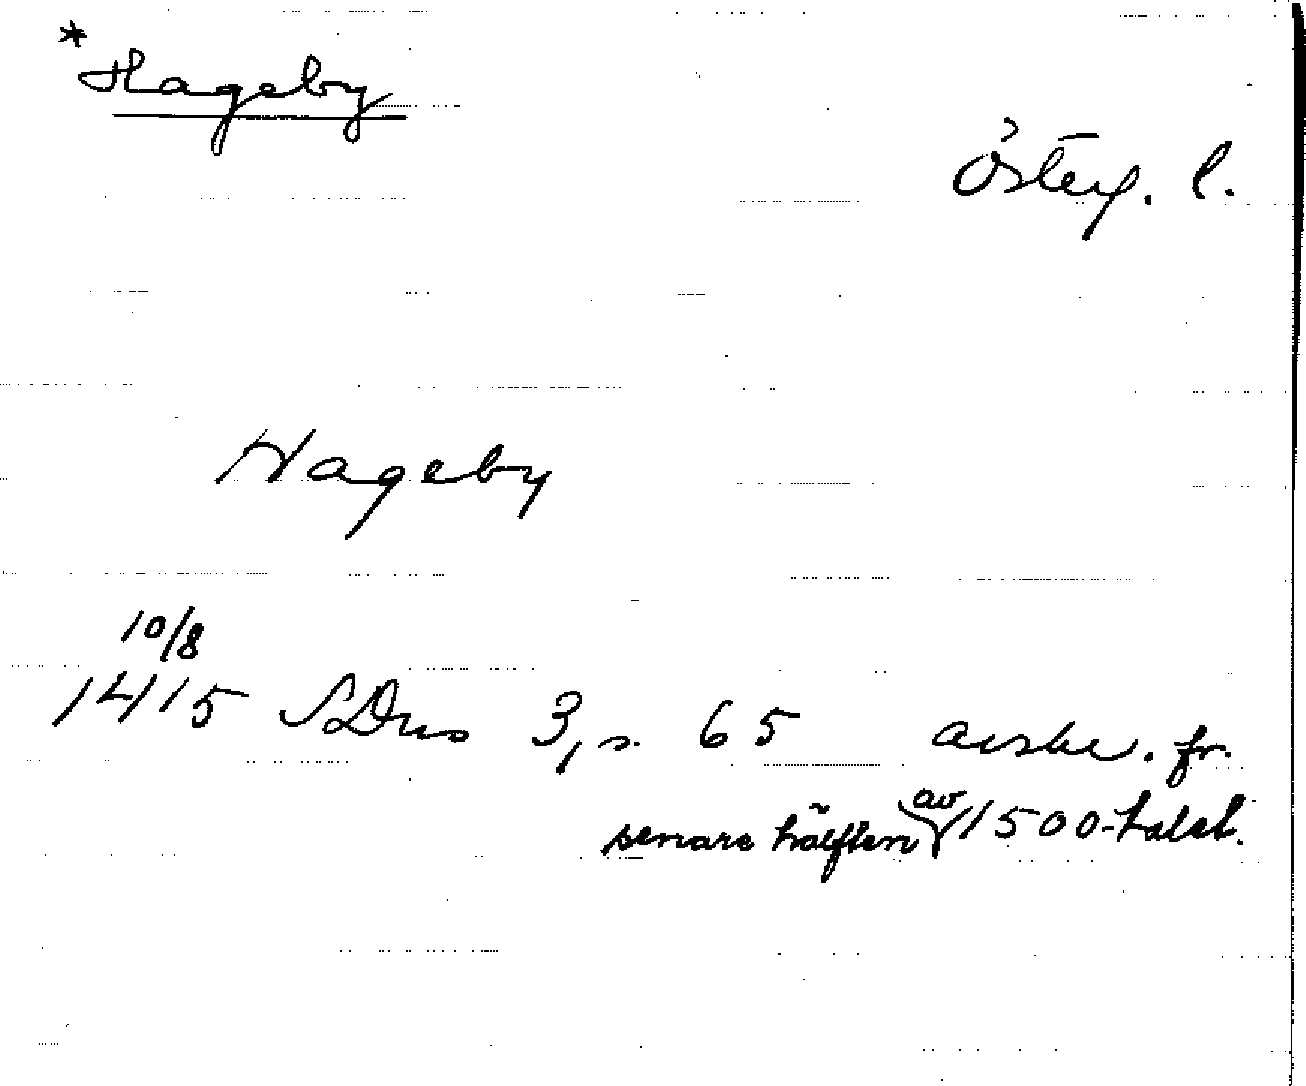 *Hageby
Österg. l.
Hageby
10/8
1415 SDns 3, s. 65 avskr. fr.
senare hälften av 1500-talet.